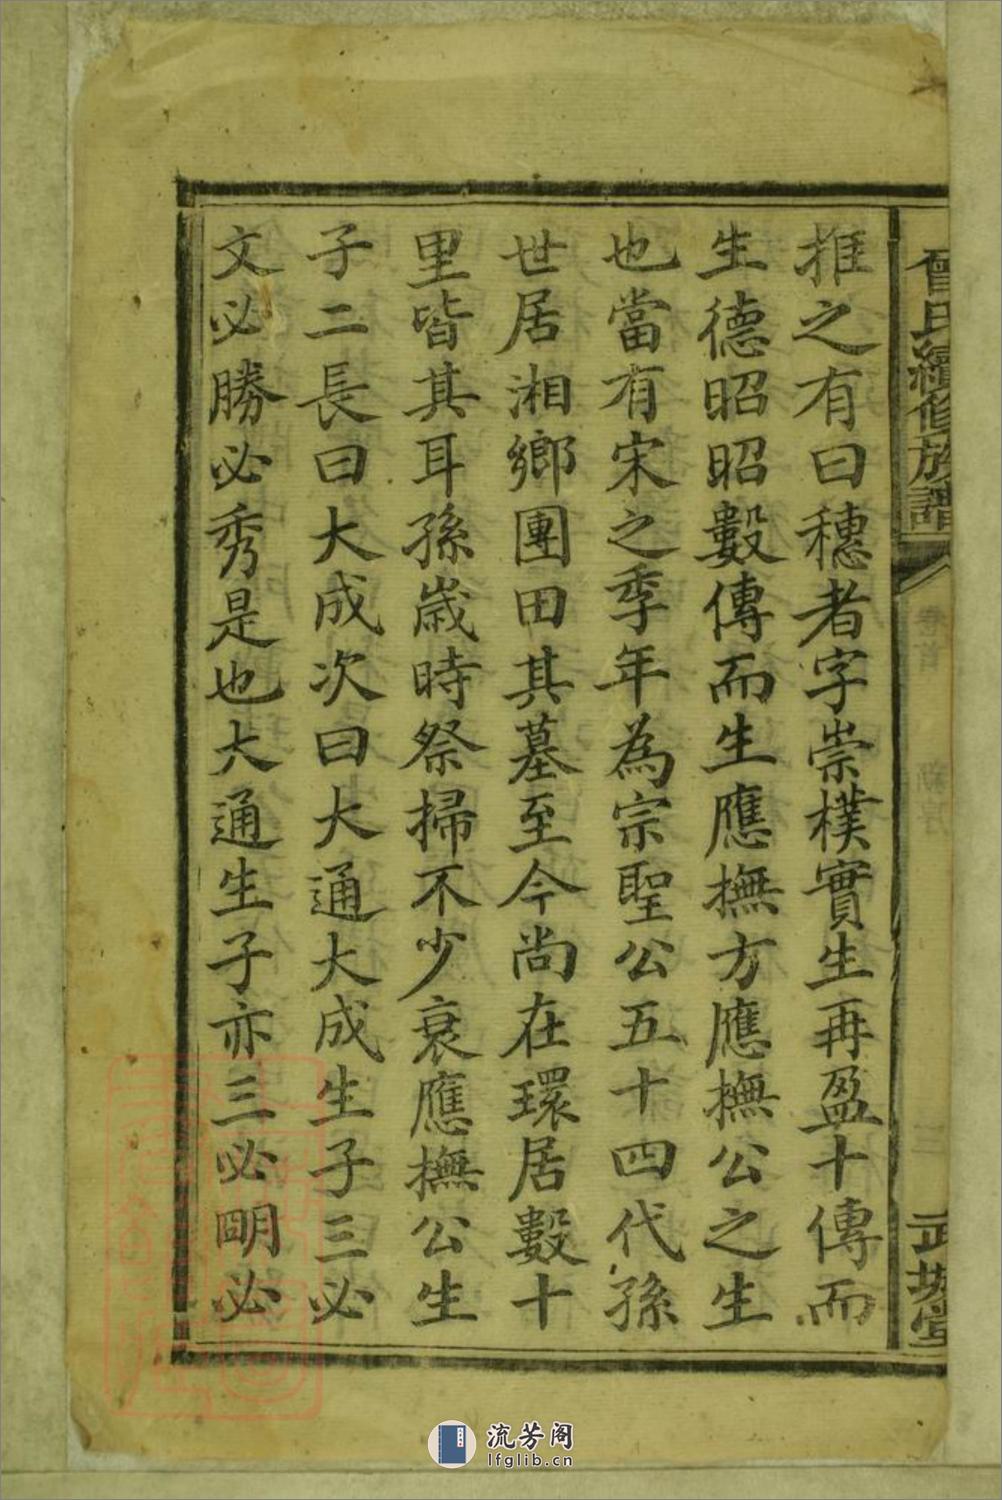 曾氏續修族譜
卷首
二
武城堂
推之有曰穗者字崇樸實生再盈十傳而
生德昭昭數傳而生應撫方應撫公之生
也當有宋之季年為宗聖公五十四代孫
世居湘鄉團田其墓至今尚在環居數十
里皆其耳孫歲時祭掃不少衰應撫公生
子二長曰大成次曰大通大成生子三必
文必勝必秀是也大通生子亦三必明必
流芳阁
lfglib.cn